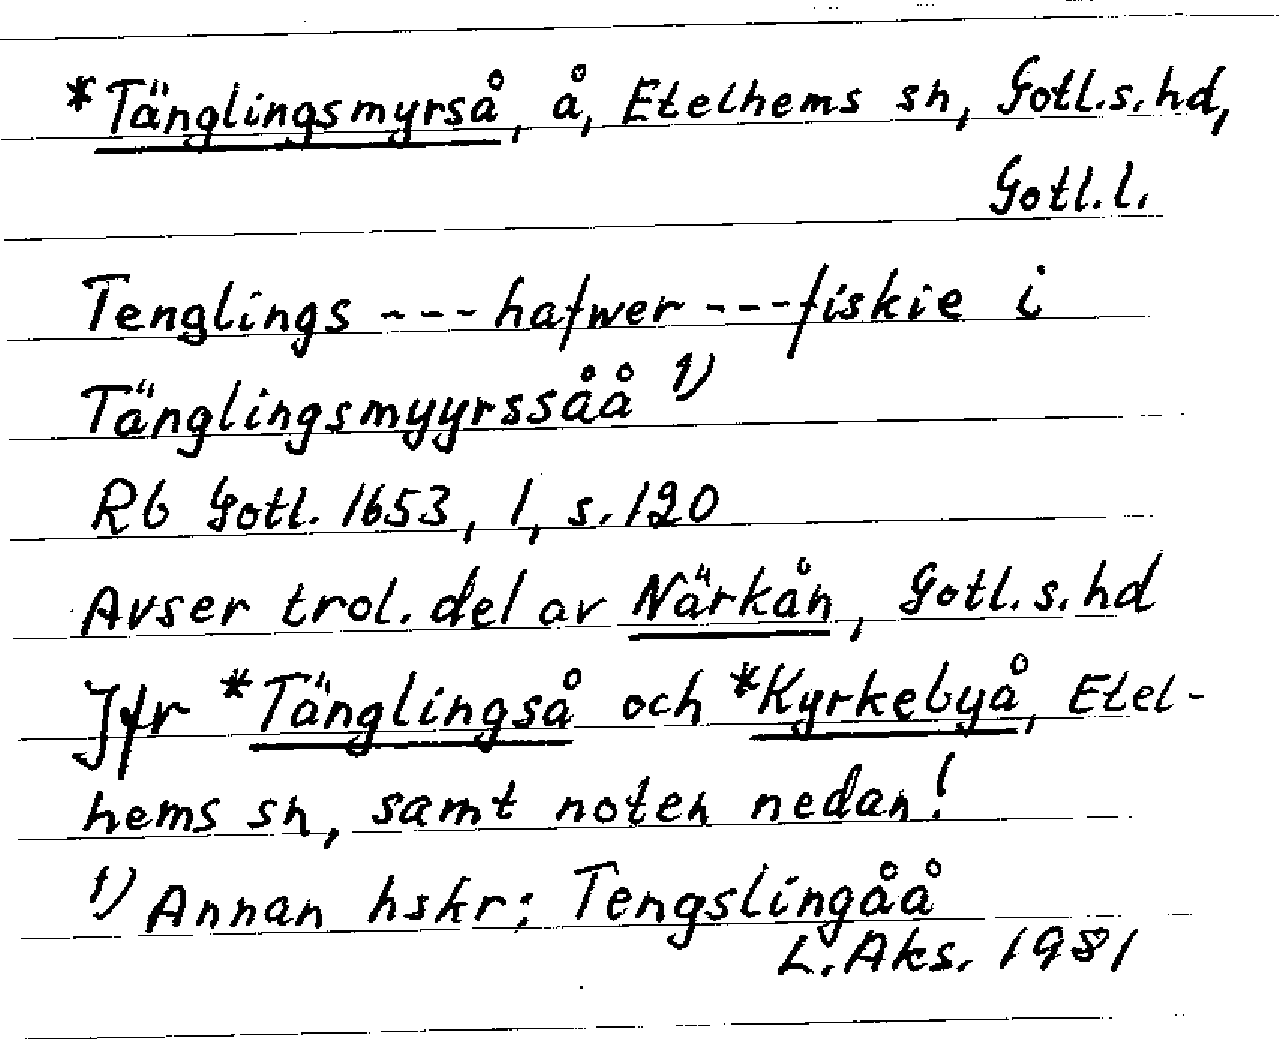 *Tänglingsmyrså, å, Etelhems sn, Gotl.s.hd,
Gotl.l.
Tenglings --- hafwer --- fiskie i
Tänglingsmyyrssåå 1)
Rb Gotl. 1653, 1, s. 120
Avser trol. del av Närkån, Gotl.s.hd
Jfr *Tänglingså och *Kyrkebyå, Etel-
hems sn, samt noten nedan!
1) Annan hskr: Tengslingåå
L. Aks. 1981